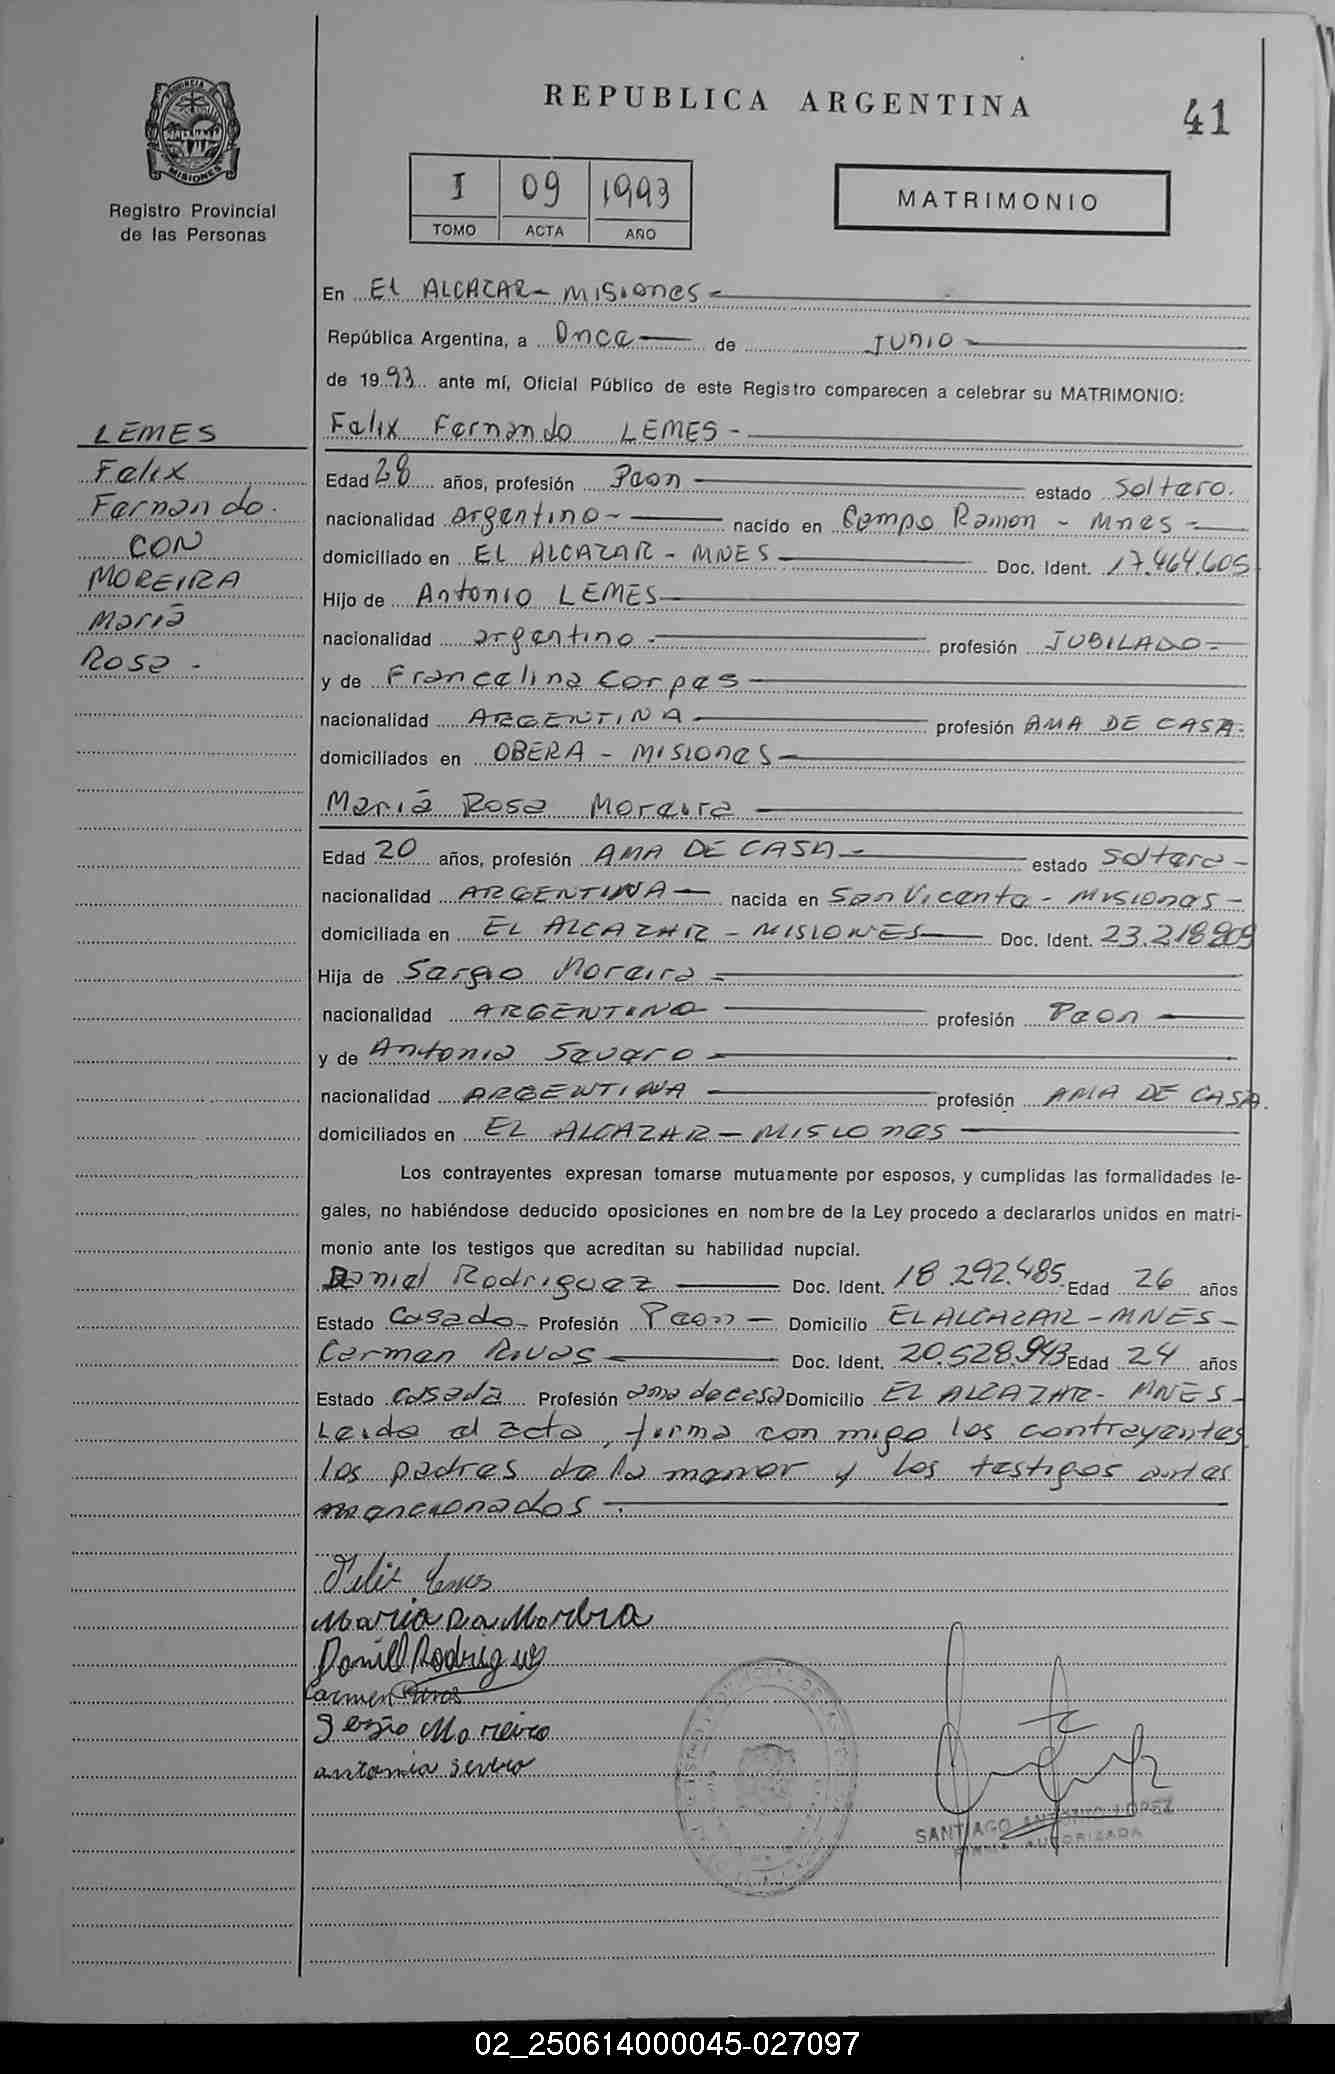 PROVINCIA DE
MISIONES
Registro Provincial
de las Personas
REPUBLICA ARGENTINA
41
I 09 1993
TOMO ACTA AÑO
MATRIMONIO
LEMES
Felix
Fernando.
CON
MOREIRA
Maria
Rosa -
En El ALCAZAR - Misiones -
República Argentina, a Once de Junio -
de 1993 ante mí, Oficial Público de este Registro comparecen a celebrar su MATRIMONIO:
Felix Fernando LEMES -
Edad 28 años, profesión Peon estado Soltero.
nacionalidad argentino - nacido en Campo Ramon - Mnes -
domiciliado en EL ALCAZAR - MNES Doc. Ident. 17.464.605
Hijo de Antonio LEMES
nacionalidad argentino - profesión JUBILADO -
y de Francelina Corpes
nacionalidad ARGENTINA profesión AMA DE CASA.
domiciliados en OBERA - Misiones -
Maria Rosa Moreira
Edad 20 años, profesión AMA DE CASA - estado Soltera -
nacionalidad ARGENTINA - nacida en San Vicente - Misiones -
domiciliada en EL ALCAZAR - MISIONES Doc. Ident. 23.218.909
Hija de Sergio Moreira
nacionalidad ARGENTINO profesión Peon
y de Antonia Severo
nacionalidad ARGENTINA profesión AMA DE CASA.
domiciliados en EL ALCAZAR - MISIONES
Los contrayentes expresan tomarse mutuamente por esposos, y cumplidas las formalidades le-
gales, no habiéndose deducido oposiciones en nombre de la Ley procedo a declararlos unidos en matri-
monio ante los testigos que acreditan su habilidad nupcial.
Daniel Rodriguez Doc. Ident. 18.292.485. Edad 26 años
Estado Casado - Profesión Peon - Domicilio EL ALCAZAR - MNES -
Carmen Rivas Doc. Ident. 20.528.943 Edad 24 años
Estado casada Profesión ama de casa Domicilio EL ALCAZAR - MNES -
Leida el acta, firma con migo los contrayentes
los padres de la menor y los testigos antes
mencionados.
Felix Lemes
Maria Moreira
Daniel Rodriguez
Carmen Rivas
Sergio Moreira
antonia severo
SANTIAGO ANTONIO LOPEZ
FIRMA AUTORIZADA
02_250614000045-027097